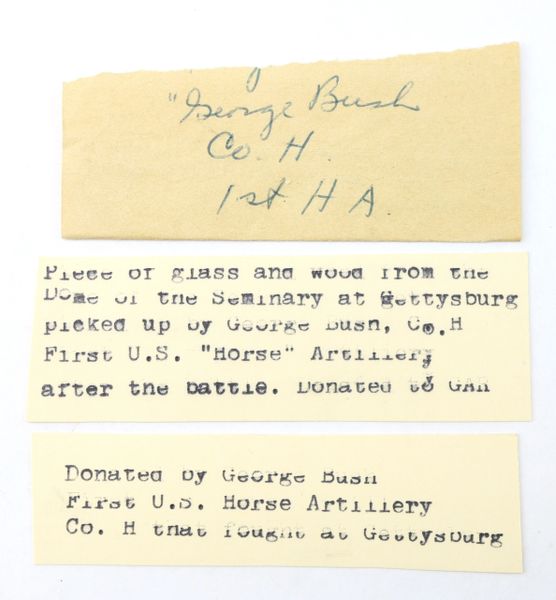 "George Bush
Co. H.
1st H A.
Piece of glass and wood from the
Dome of the Seminary at Gettysburg
picked up by George Bush, Co.H
First U.S. "Horse" Artillery
after the battle. Donated to GAR
Donated by George Bush
First U.S. Horse Artillery
Co. H that fought at Gettysburg